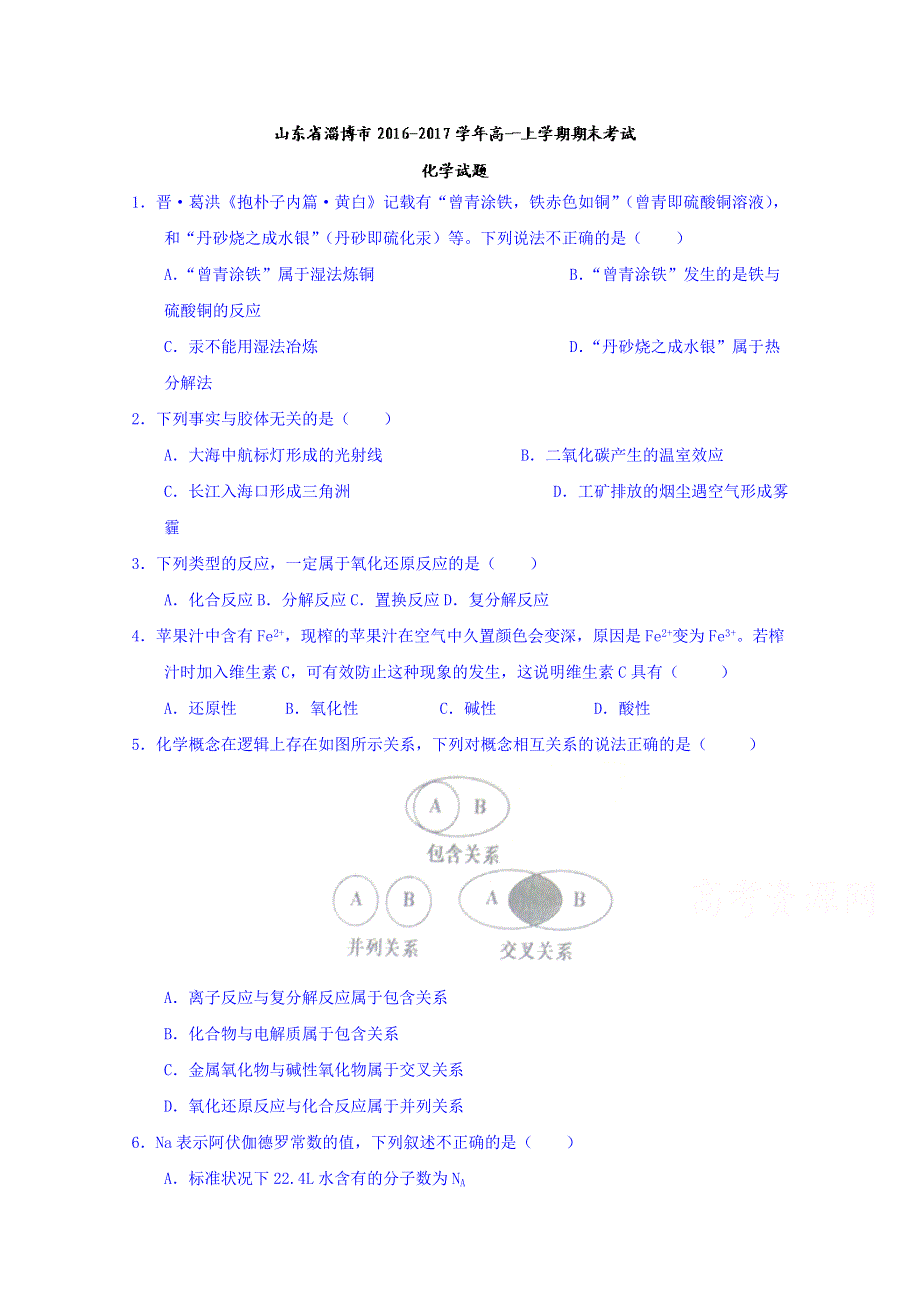 山东省淄博市2016-2017学年高一上学期期末考试
化学试题
1．晋·葛洪《抱朴子内篇·黄白》记载有“曾青涂铁，铁赤色如铜”（曾青即硫酸铜溶液），
和“丹砂烧之成水银”（丹砂即硫化汞）等。下列说法不正确的是（　　）
A．“曾青涂铁”属于湿法炼铜 B．“曾青涂铁”发生的是铁与
硫酸铜的反应
C．汞不能用湿法冶炼 D．“丹砂烧之成水银”属于热
分解法
2．下列事实与胶体无关的是（　　）
A．大海中航标灯形成的光射线 B．二氧化碳产生的温室效应
C．长江入海口形成三角洲 D．工矿排放的烟尘遇空气形成雾
霾
3．下列类型的反应，一定属于氧化还原反应的是（　　）
A．化合反应B．分解反应C．置换反应D．复分解反应
4．苹果汁中含有Fe²⁺，现榨的苹果汁在空气中久置颜色会变深，原因是Fe²⁺变为Fe³⁺。若榨
汁时加入维生素C，可有效防止这种现象的发生，这说明维生素C具有（　　）
A．还原性 B．氧化性 C．碱性 D．酸性
5．化学概念在逻辑上存在如图所示关系，下列对概念相互关系的说法正确的是（　　）
A B
包含关系
A B A B
并列关系 交叉关系
高考资源网
A．离子反应与复分解反应属于包含关系
B．化合物与电解质属于包含关系
C．金属氧化物与碱性氧化物属于交叉关系
D．氧化还原反应与化合反应属于并列关系
6．Na表示阿伏伽德罗常数的值，下列叙述不正确的是（　　）
A．标准状况下22.4L水含有的分子数为N_A